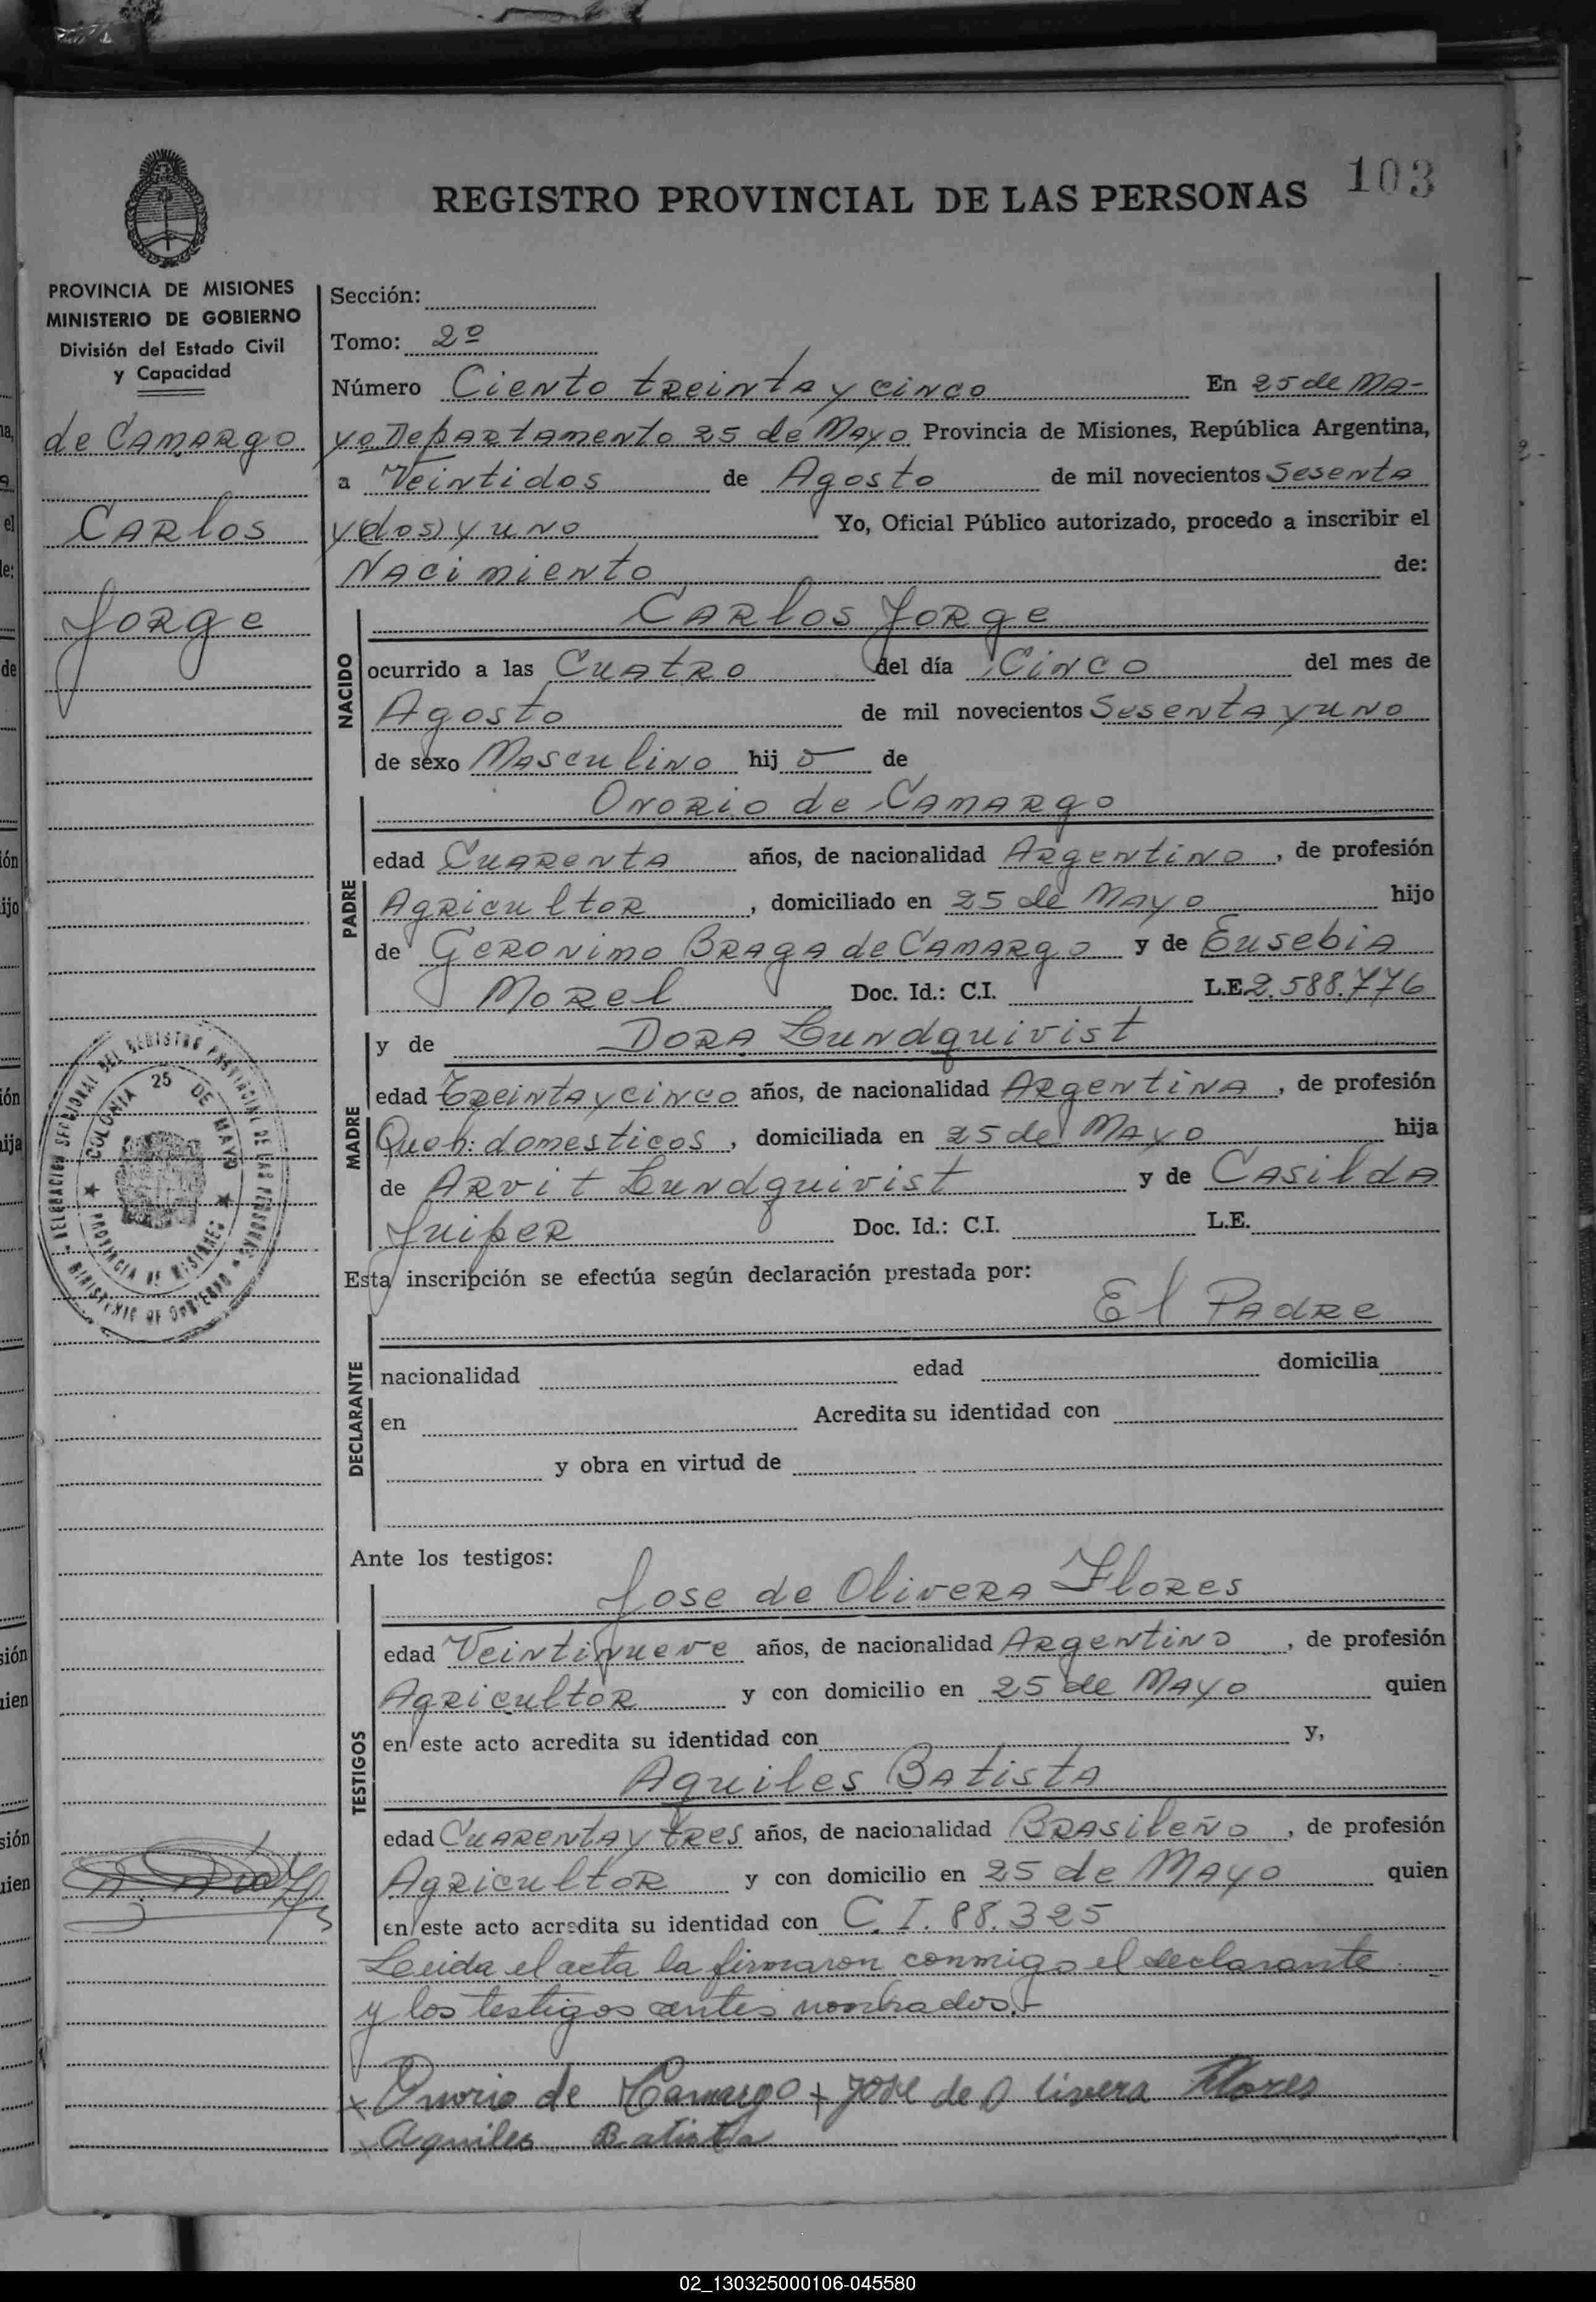 103
REGISTRO PROVINCIAL DE LAS PERSONAS
PROVINCIA DE MISIONES
MINISTERIO DE GOBIERNO
División del Estado Civil
y Capacidad
de Camargo
Carlos
Jorge
Sección:
Tomo: 2º
Número Ciento treinta y cinco En 25 de Ma-
yo Departamento 25 de Mayo Provincia de Misiones, República Argentina,
a Veintidos de Agosto de mil novecientos Sesenta
y (dos) y uno Yo, Oficial Público autorizado, procedo a inscribir el
Nacimiento de:
Carlos Jorge
NACIDO
ocurrido a las Cuatro del día Cinco del mes de
Agosto de mil novecientos Sesenta y uno
de sexo Masculino hij o de
Onorio de Camargo
PADRE
edad Cuarenta años, de nacionalidad Argentino, de profesión
Agricultor, domiciliado en 25 de Mayo hijo
de Geronimo Braga de Camargo y de Eusebia
Morel Doc. Id.: C.I. L.E. 2.588.776
y de Dora Lundquivist
MADRE
edad Treinta y cinco años, de nacionalidad Argentina, de profesión
Queh: domesticos, domiciliada en 25 de Mayo hija
de Arvit Lundquivist y de Casilda
Juiper Doc. Id.: C.I. L.E.
DELEGACION SECCIONAL DEL REGISTRO PROVINCIAL DE LAS PERSONAS
COLONIA 25 DE MAYO
PROVINCIA DE MISIONES
MINISTERIO DE GOBIERNO
Esta inscripción se efectúa según declaración prestada por:
El Padre
DECLARANTE
nacionalidad edad domicilia
en Acredita su identidad con
y obra en virtud de
Ante los testigos:
Jose de Olivera Flores
TESTIGOS
edad Veintinueve años, de nacionalidad Argentino, de profesión
Agricultor y con domicilio en 25 de Mayo quien
en este acto acredita su identidad con y,
Aquiles Batista
edad Cuarenta y tres años, de nacionalidad Brasileño, de profesión
Agricultor y con domicilio en 25 de Mayo quien
en este acto acredita su identidad con C.I. 88.325
Leida el acta la firmaron conmigo el declarante
y los testigos antes nombrados.-
x Onorio de Camargo + Jose de Olivera Flores
x Aquiles Batista
02_130325000106-045580